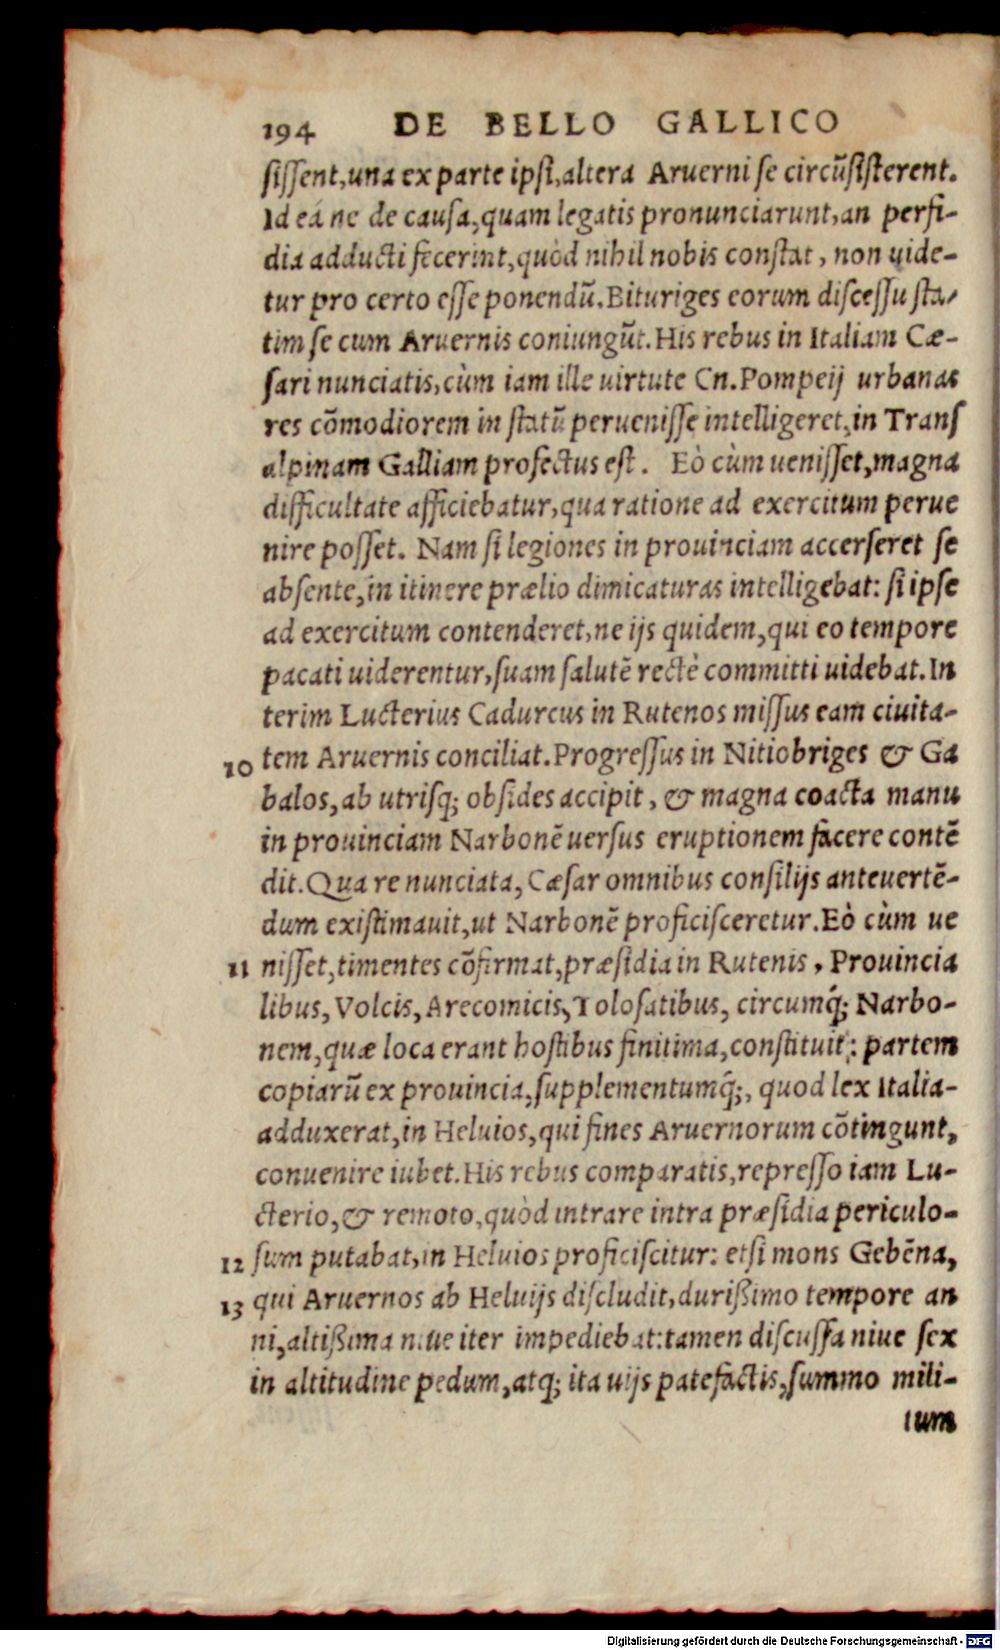 194 DE BELLO GALLICO
sissent, una ex parte ipsi, altera Aruerni se circũsisterent.
Id eá ne de causa, quam legatis pronunciarunt, an perfi-
dia adducti fecerint, quòd nihil nobis constat, non uide-
tur pro certo esse ponendũ. Bituriges eorum discessu sta-
tim se cum Aruernis coniungũt. His rebus in Italiam Cæ-
sari nunciatis, cùm iam ille uirtute Cn. Pompeij urbanas
res cõmodiorem in statũ peruenisse intelligeret, in Trans
alpinam Galliam profectus est. Eò cùm uenisset, magna
difficultate afficiebatur, qua ratione ad exercitum perue
nire posset. Nam si legiones in prouinciam accerseret se
absente, in itinere prælio dimicaturas intelligebat: si ipse
ad exercitum contenderet, ne ijs quidem, qui eo tempore
pacati uiderentur, suam salutē rectè committi uidebat. In
terim Lucterius Cadurcus in Rutenos missus eam ciuita-
10 tem Aruernis conciliat. Progressus in Nitiobriges & Ga
balos, ab utrisq; obsides accipit, & magna coacta manu
in prouinciam Narbonē uersus eruptionem facere contē
dit. Qua re nunciata, Cæsar omnibus consilijs anteuertē-
dum existimauit, ut Narbonē proficisceretur. Eò cùm ue
11 nisset, timentes cõfirmat, præsidia in Rutenis, Prouincia
libus, Volcis, Arecomicis, Tolosatibus, circumq́; Narbo-
nem, quæ loca erant hostibus finitima, constituit: partem
copiarũ ex prouincia, supplementumq́;, quod lex Italia-
adduxerat, in Heluios, qui fines Aruernorum cõtingunt,
conuenire iubet. His rebus comparatis, represso iam Lu-
cterio, & remoto, quòd intrare intra præsidia periculo-
12 sum putabat, in Heluios proficiscitur: etsi mons Gebēna,
13 qui Aruernos ab Heluijs discludit, durißimo tempore an
ni, altißima niue iter impediebat: tamen discussa niue sex
in altitudine pedum, atq; ita uijs patefactis, summo mili-
tum
Digitalisierung gefördert durch die Deutsche Forschungsgemeinschaft - DFG